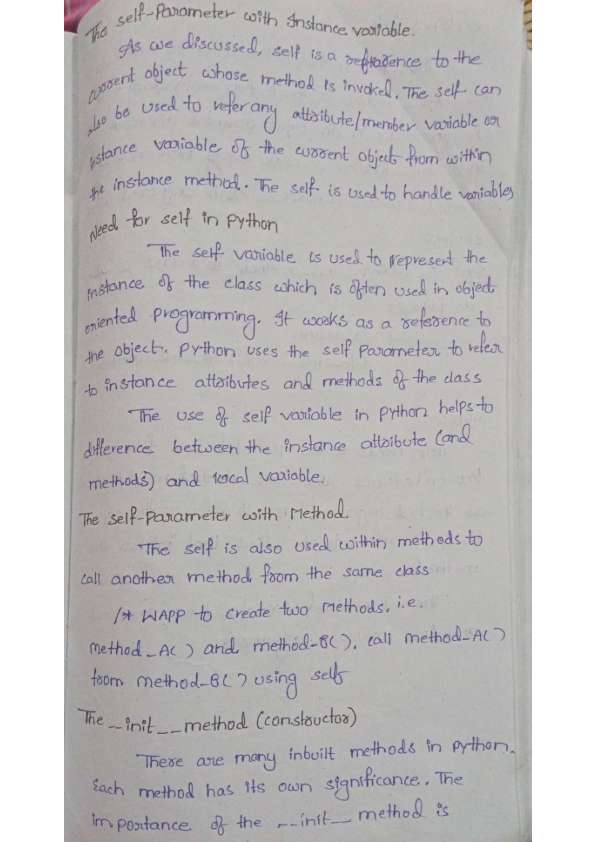 The self-Parameter with Instance variable.
As we discussed, self is a reference to the
current object whose method is invoked. The self can
also be used to refer any attribute/member variable or
instance variable of the current object from within
the instance method. The self is used to handle variables
Need for self in Python
The self variable is used to represent the
instance of the class which is often used in object
oriented programming. It works as a reference to
the object. Python uses the self parameter to refer
to instance attributes and methods of the class
The use of self variable in python helps to
difference between the instance attribute (and
methods) and local variable.
The self-Parameter with Method.
The self is also used within methods to
call another method from the same class
/* WAPP to create two methods. i.e.
method_A( ) and method-B( ). call method-A( )
from method-B( ) using self
The __init__ method (constructor)
There are many inbuilt methods in python.
Each method has its own significance. The
importance of the __init__ method is